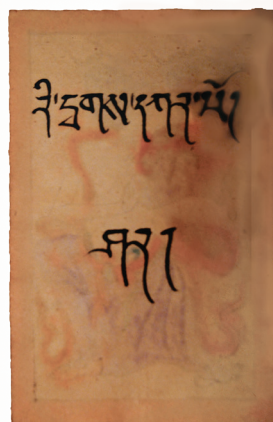 རི་དྭགས་དཀར་པོ།
ཤར།